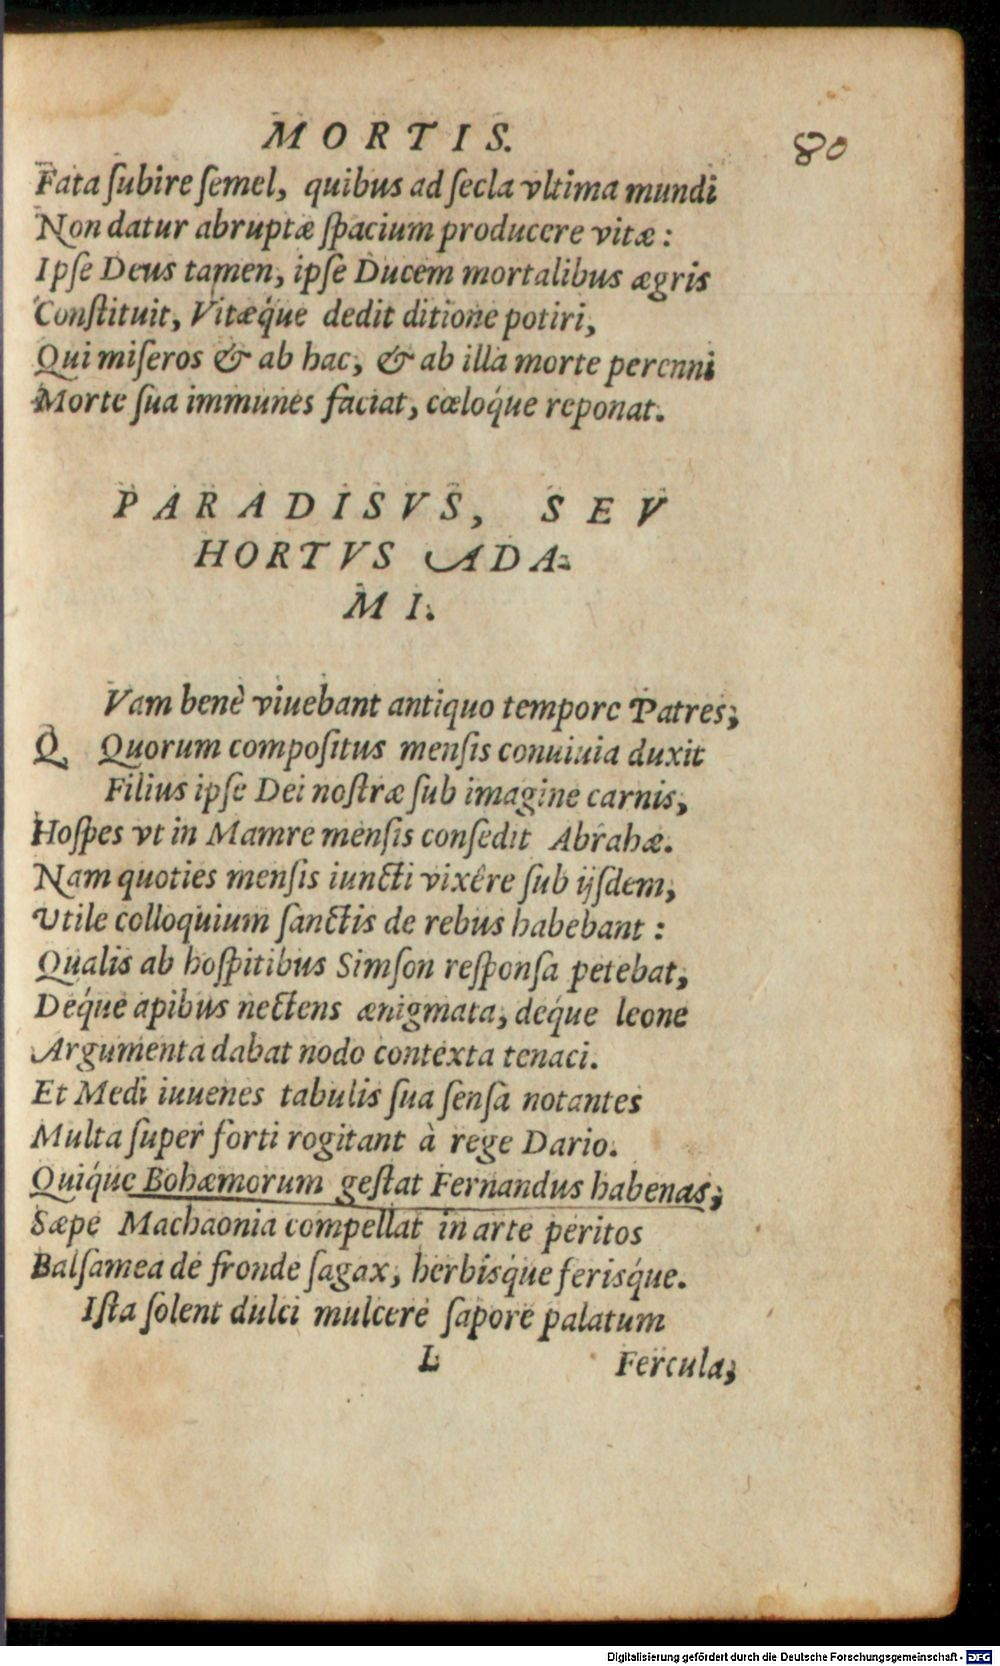 MORTIS.
80
Fata ſubire ſemel, quibus ad ſecla vltima mundi
Non datur abruptæ ſpacium producere vitæ:
Ipſe Deus tamen, ipſe Ducem mortalibus ægris
Conſtituit, Vitæq́ue dedit ditione potiri,
Qui miſeros & ab hac, & ab illa morte perenni
Morte ſua immunes faciat, cœloq́ue reponat.
PARADISVS, SEV
HORTVS ADA-
MI.
Vam benè viuebant antiquo tempore Patres,
Q Quorum compoſitus menſis conuiuia duxit
Filius ipſe Dei noſtræ ſub imagine carnis,
Hoſpes vt in Mamre menſis conſedit Abrahæ.
Nam quoties menſis iuncti vixêre ſub ijſdem,
Vtile colloquium ſanctis de rebus habebant:
Qualis ab hoſpitibus Simſon reſponſa petebat,
Deq́ue apibus nectens ænigmata, deq́ue leone
Argumenta dabat nodo contexta tenaci.
Et Medi iuuenes tabulis ſua ſenſa notantes
Multa ſuper forti rogitant à rege Dario.
Quiq́ue Bohæmorum geſtat Fernandus habenas,
Sæpe Machaonia compellat in arte peritos
Balſamea de fronde ſagax, herbisq́ue ferisq́ue.
Iſta ſolent dulci mulcere ſapore palatum
L Fercula,
Digitalisierung gefördert durch die Deutsche Forschungsgemeinschaft - DFG